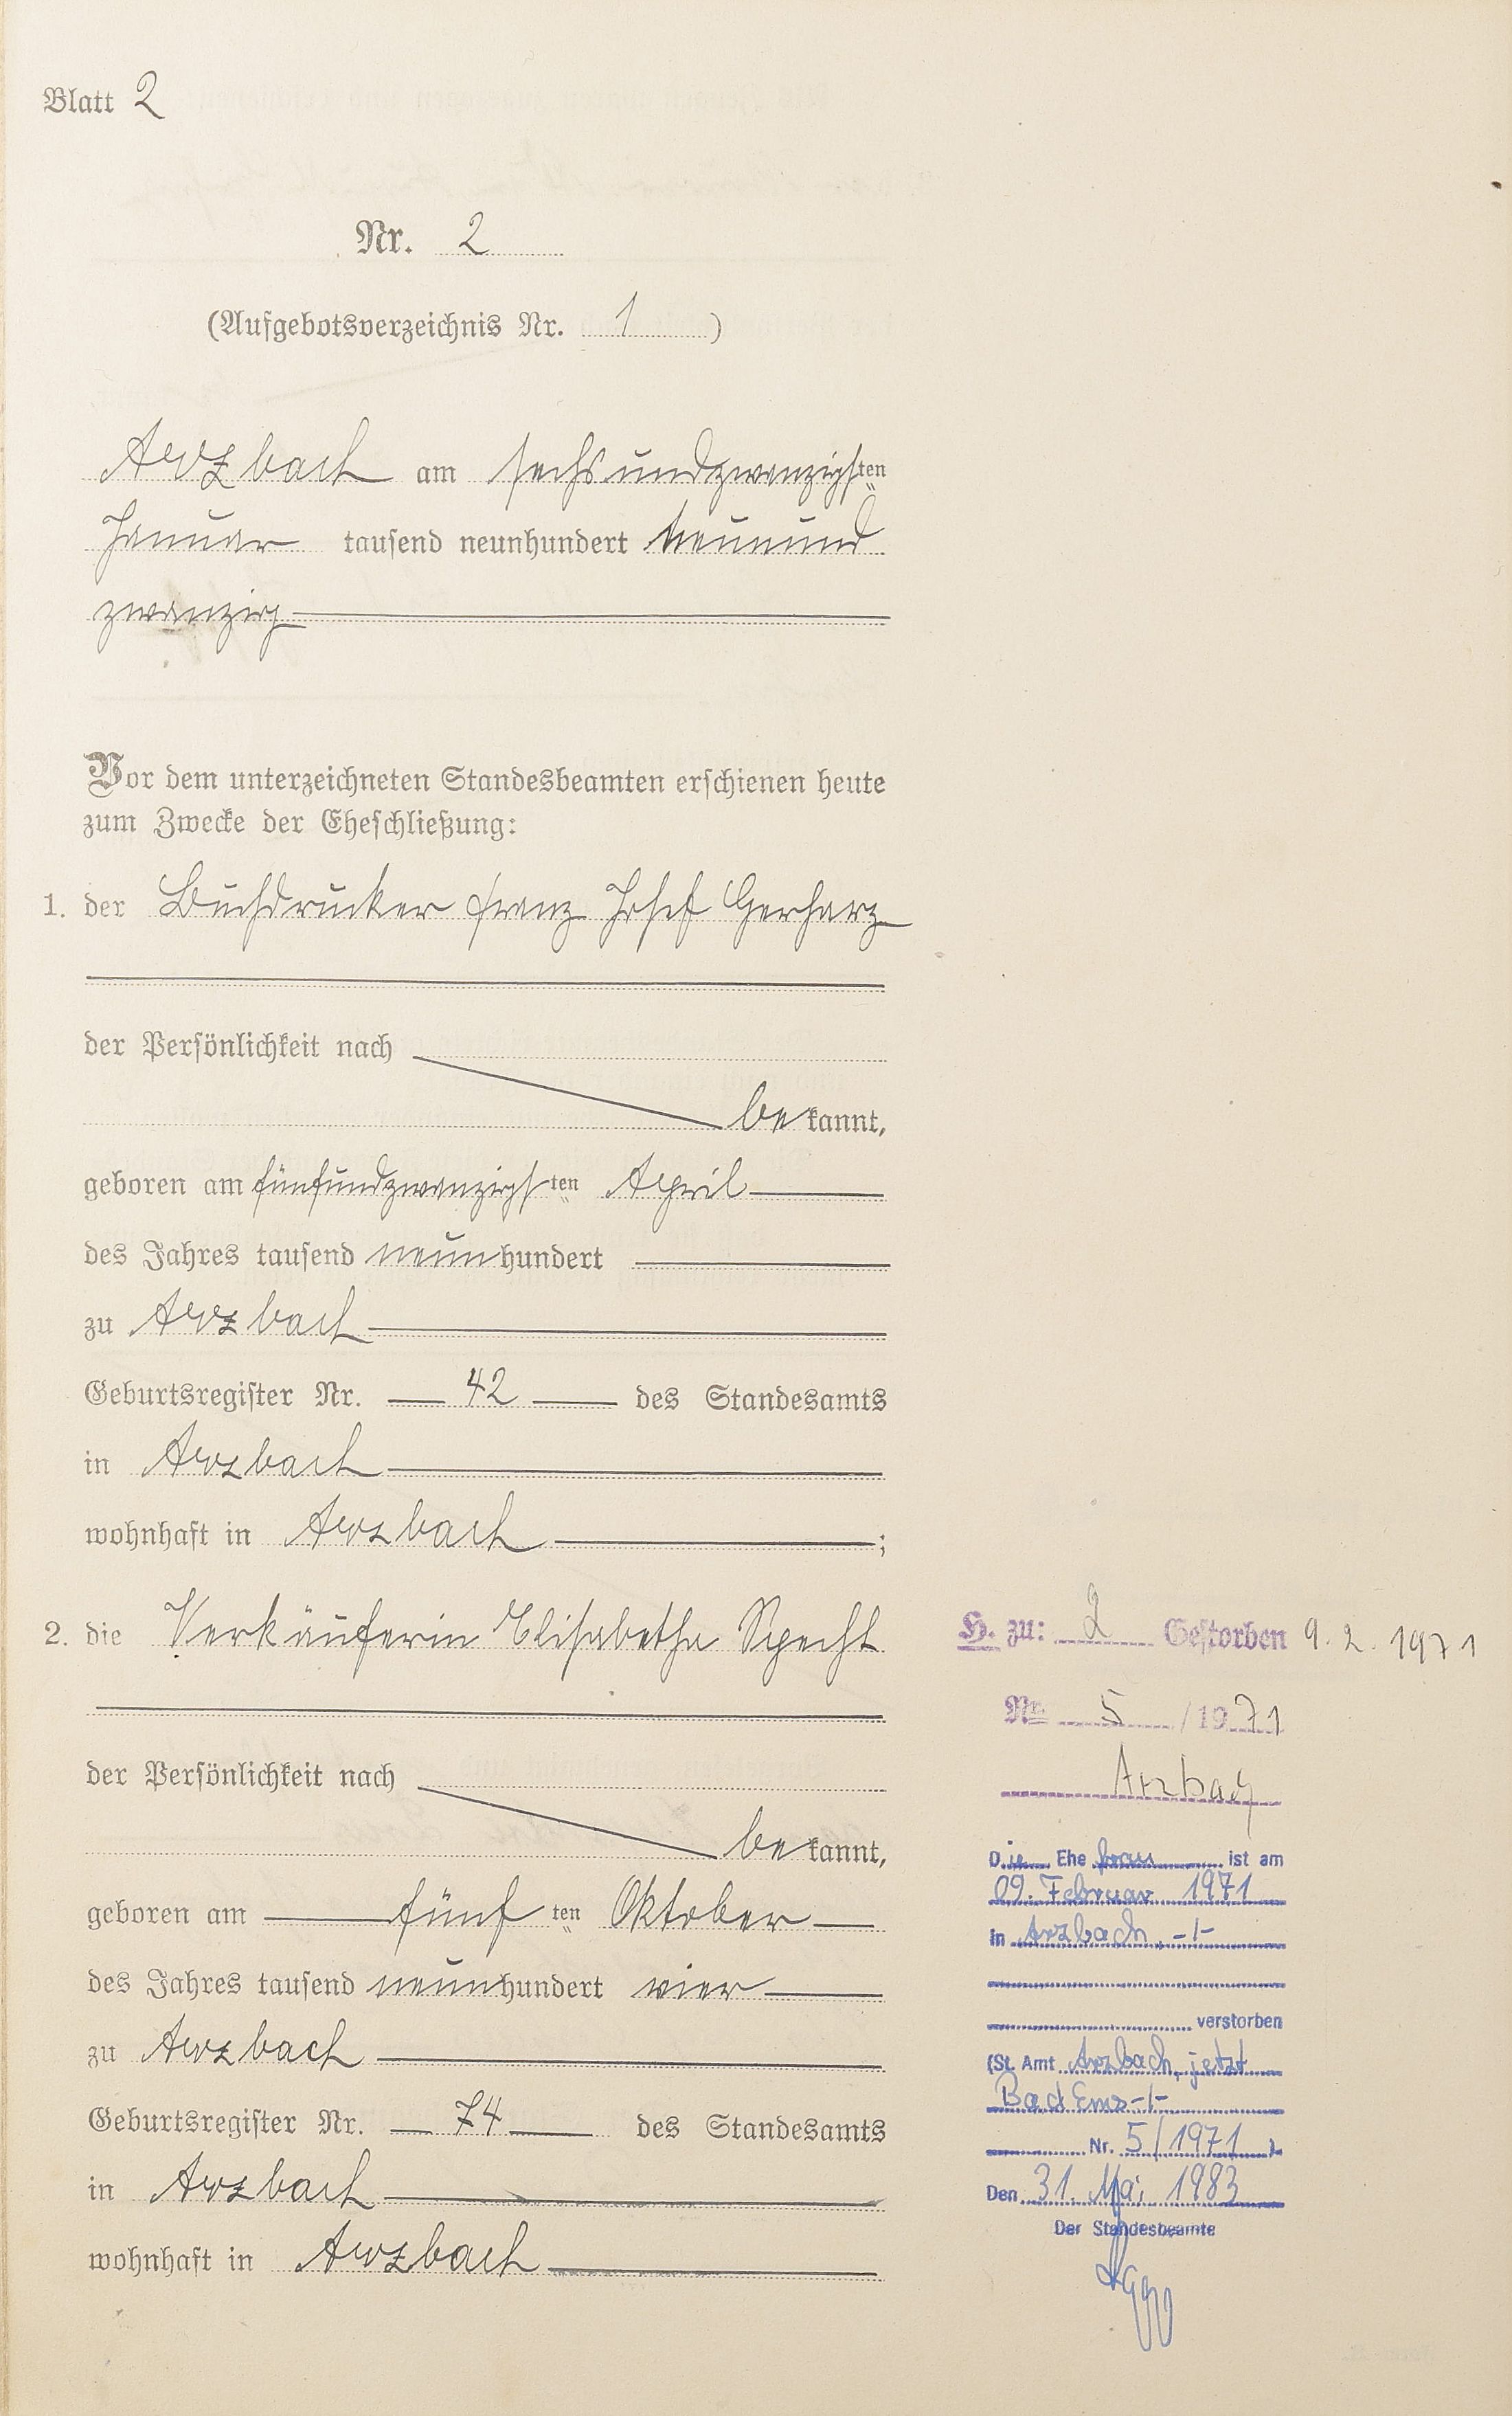 Blatt 2
Nr. 2
(Aufgebotsverzeichnis Nr. 1)
Arzbach am sechsundzwanzigsten
Januar tausend neunhundert neunund
zwanzig
Vor dem unterzeichneten Standesbeamten erschienen heute
zum Zwecke der Eheschließung:
1. der Buchdrucker Franz Josef Gerharz
der Persönlichkeit nach
bekannt,
geboren am fünfundzwanzigsten April
des Jahres tausend neunhundert
zu Arzbach
Geburtsregister Nr. 42 des Standesamts
in Arzbach
wohnhaft in Arzbach ;
2. die Verkäuferin Elisabetha Specht
der Persönlichkeit nach
bekannt,
geboren am fünften Oktober
des Jahres tausend neunhundert vier
zu Arzbach
Geburtsregister Nr. 74 des Standesamts
in Arzbach
wohnhaft in Arzbach
H. zu: 2 Gestorben 9.2.1971
Nr. 5/1971
Arzbach
Die Ehefrau ist am
09. Februar 1971
in Arzbach -/-
verstorben
(St. Amt Arzbach, jetzt
Bad Ems -/-
Nr. 5/1971)
Den 31. Mai 1983
Der Standesbeamte